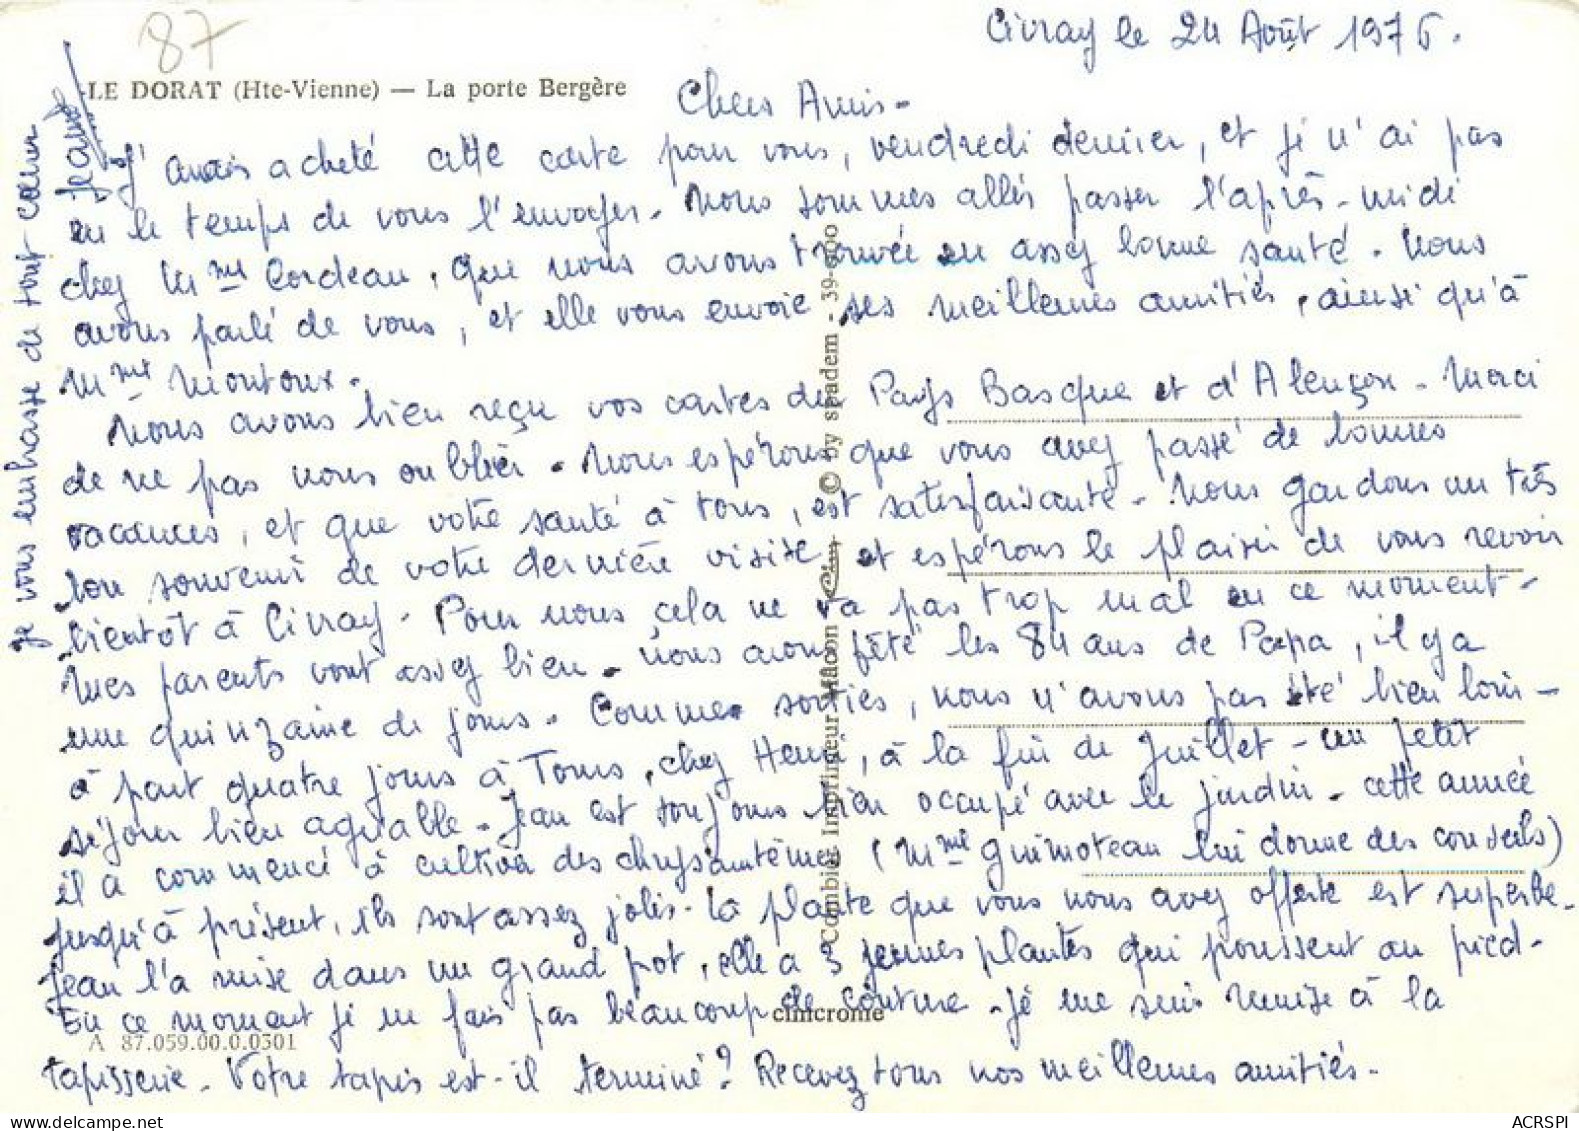 87
Civray le 24 Août 1976.
LE DORAT (Hte-Vienne) — La porte Bergère
Chers Amis -
J'avais acheté cette carte pour vous, vendredi dernier, et je n'ai pas
eu le temps de vous l'envoyer. Nous sommes allés passer l'après-midi
chez Mme Cordeau, que nous avons trouvée en assez bonne santé. Nous
avons parlé de vous, et elle vous envoie ses meilleures amitiés, ainsi qu'à
Mme Montoux.
Nous avons bien reçu vos cartes du Pays Basque et d'Alençon - Merci
de ne pas nous oublier. Nous espérons que vous avez passé de bonnes
vacances, et que votre santé à tous, est satisfaisante. Nous gardons un très
bon souvenir de votre dernière visite et espérons le plaisir de vous revoir
bientôt à Civray. Pour nous cela ne va pas trop mal en ce moment.
Mes parents vont assez bien. Nous avons fêté les 84 ans de Papa, il y a
une quinzaine de jours. Comme sorties, nous n'avons pas été bien loin -
à part quatre jours à Tours, chez Henri, à la fin de Juillet - un petit
séjour bien agréable. Jean est toujours bien occupé avec le jardin. cette année
il a commencé à cultiver des chrysantèmes (Mme Guimoteau lui donne des conseils)
jusqu'à présent, ils sont assez jolis. La plante que vous nous avez offerte est superbe.
Jean l'a mise dans un grand pot, elle a 3 jeunes plantes qui poussent au pied.
En ce moment je ne fais pas beaucoup de couture - Je me suis remise à la
tapisserie. Votre tapis est-il terminé? Recevez tous nos meilleures amitiés.
Je vous embrasse de tout cœur
© by spadem - 39-600
Combier Imprimeur Mâcon - Cim
cimcrome
A 87.059.00.0.0301
ACRSPI